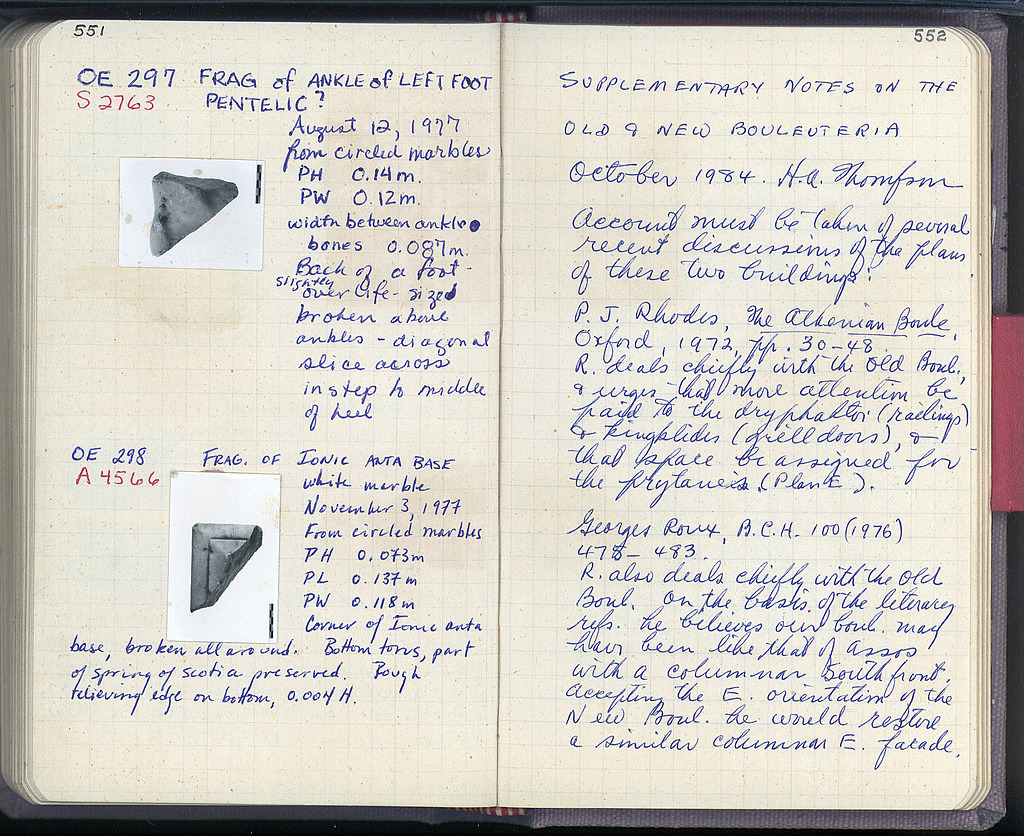 551
OE 297 FRAG of ANKLE of LEFT FOOT
S 2763 PENTELIC?
August 12, 1977
from circled marbles
PH 0.14 m.
PW 0.12 m.
width between ankle
bones 0.087m.
Back of a foot -
slightly
over life-sized
broken above
ankles - diagonal
slice across
instep to middle
of heel
OE 298 FRAG. OF IONIC ANTA BASE
A 4566 white marble
November 3, 1977
From circled marbles
PH 0.073m
PL 0.137 m
PW 0.118 m
Corner of Ionic anta
base, broken all around. Bottom torus, part
of spring of scotia preserved. Rough
relieving edge on bottom, 0.004 H.
552
SUPPLEMENTARY NOTES ON THE
OLD & NEW BOULEUTERIA
October 1984. H.A. Thompson
Account must be taken of several
recent discussions of the plans
of these two buildings:
P. J. Rhodes, The Athenian Boule,
Oxford, 1972, pp. 30-48.
R. deals chiefly with the Old Boul.,
& urges that more attention be
paid to the dryphaktoi (railings)
& kingklides (grill doors), &
that space be assigned for
the prytaneis. (Plan E).
Georges Roux, B.C.H. 100 (1976)
475-483.
R. also deals chiefly with the Old
Boul. On the basis of the literary
refs. he believes our boul. may
have been like that of Assos
with a columnar South front.
Accepting the E. orientation of the
New Boul. he would restore
a similar columnar E. facade.